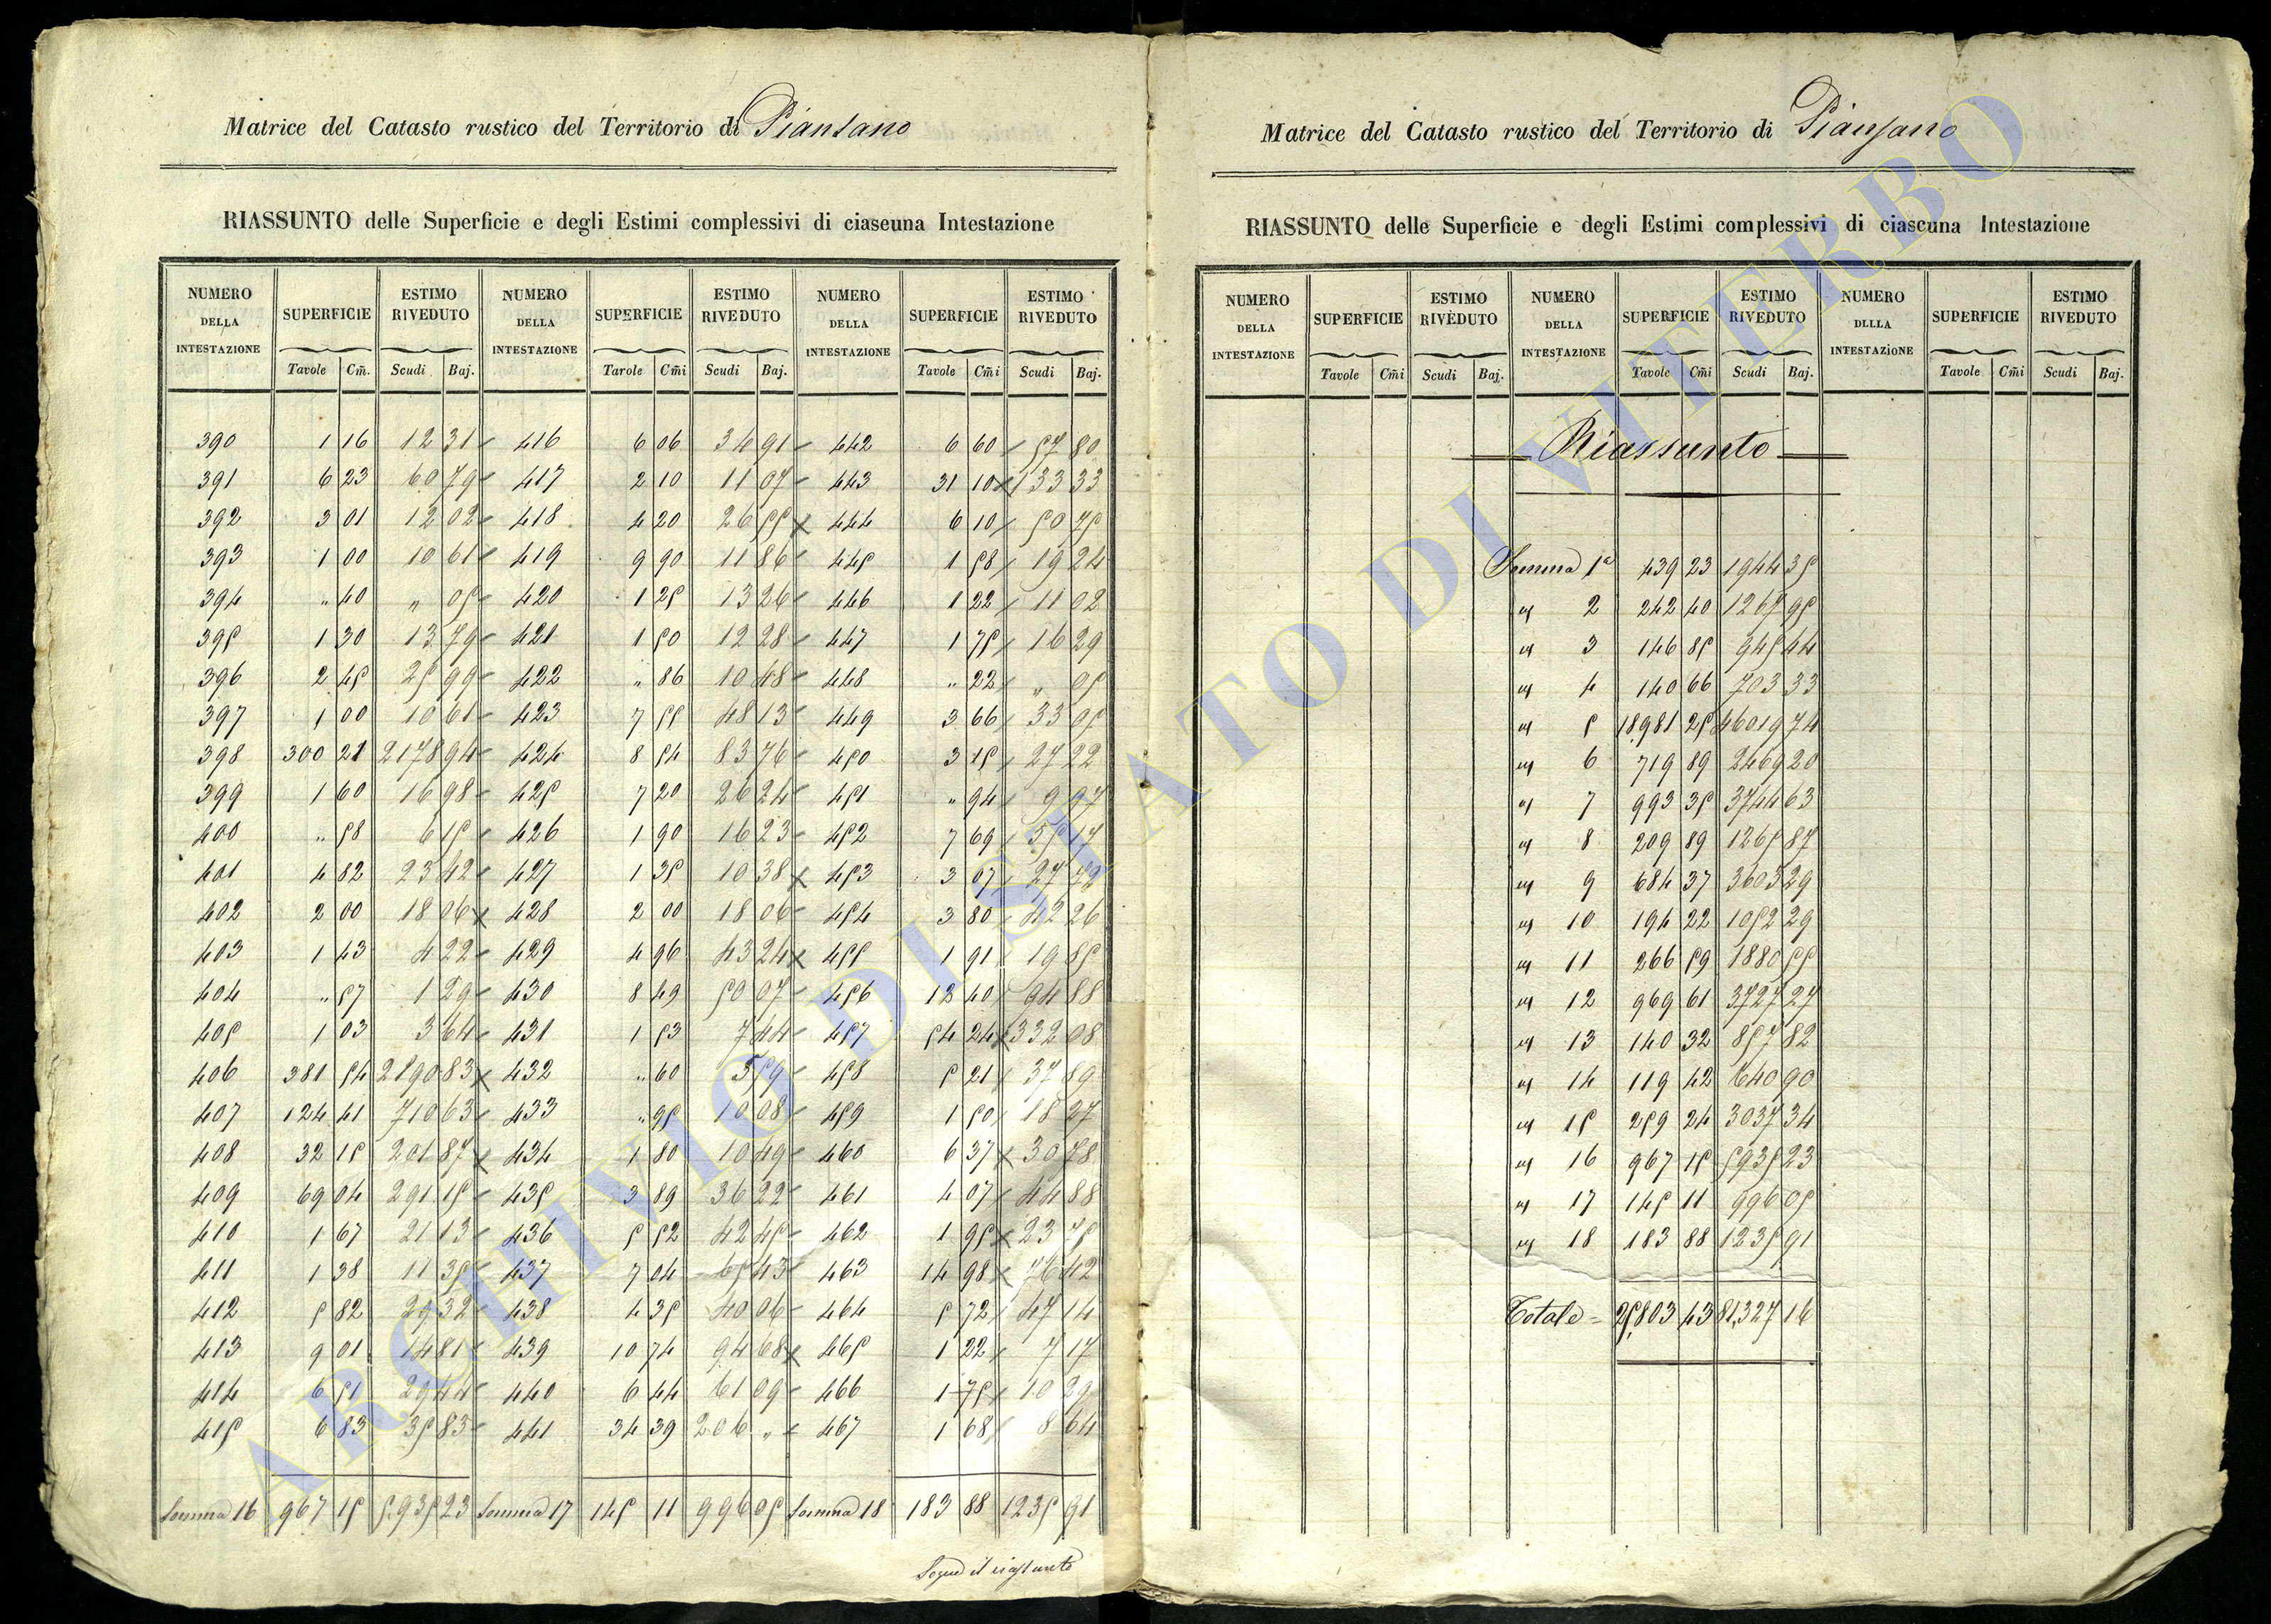 Matrice del Catasto rustico del Territorio di Piansano
RIASSUNTO delle Superficie e degli Estimi complessivi di ciascuna Intestazione
NUMERO DELLA INTESTAZIONE SUPERFICIE ESTIMO RIVEDUTO NUMERO DELLA INTESTAZIONE SUPERFICIE ESTIMO RIVEDUTO NUMERO DELLA INTESTAZIONE SUPERFICIE ESTIMO RIVEDUTO
Tavole Cm̄. Scudi Baj. Tavole Cm̄i Scudi Baj. Tavole Cm̄i Scudi Baj.
390 1 16 12 31 416 6 06 34 91 442 6 60 57 80
391 6 23 60 79 417 2 10 11 07 443 31 10 133 33
392 3 01 12 02 418 4 20 26 55 444 6 10 50 75
393 1 00 10 61 419 9 90 11 86 445 1 58 19 24
394 " 40 " 05 420 1 25 13 26 446 1 22 11 02
395 1 30 13 79 421 1 50 12 28 447 1 75 16 29
396 2 45 25 99 422 " 86 10 48 448 " 22 " 05
397 1 00 10 61 423 7 55 48 13 449 3 66 33 05
398 300 21 2178 94 424 8 54 83 76 450 3 15 27 22
399 1 60 16 98 425 7 20 26 24 451 " 94 9 97
400 " 58 6 15 426 1 90 16 23 452 7 69 55 17
401 4 82 23 42 427 1 35 10 38 453 3 07 27 72
402 2 00 18 06 428 2 00 18 06 454 3 80 42 26
403 1 43 4 22 429 4 96 43 24 455 1 91 19 85
404 " 57 1 29 430 8 49 50 07 456 12 40 94 88
405 1 03 3 64 431 1 53 7 44 457 54 24 332 08
406 381 54 2190 83 432 " 60 5 59 458 5 21 37 89
407 124 41 710 63 433 " 95 10 08 459 1 50 18 27
408 32 15 201 87 434 1 80 10 49 460 6 37 30 78
409 69 04 291 15 435 3 89 36 22 461 4 07 44 88
410 1 67 21 13 436 5 52 42 45 462 1 95 23 75
411 1 38 11 35 437 7 04 65 43 463 14 98 76 42
412 5 82 29 32 438 4 35 40 06 464 5 72 47 14
413 9 01 14 81 439 10 74 94 68 465 1 22 7 17
414 6 51 29 44 440 6 44 61 09 466 1 75 10 29
415 6 83 35 83 441 34 39 206 " 467 1 68 8 64
Somma 16 967 15 5935 23 Somma 17 145 11 996 05 Somma 18 183 88 1235 91
Segue il riassunto
Matrice del Catasto rustico del Territorio di Piansano
RIASSUNTO delle Superficie e degli Estimi complessivi di ciascuna Intestazione
NUMERO DELLA INTESTAZIONE SUPERFICIE ESTIMO RIVEDUTO NUMERO DELLA INTESTAZIONE SUPERFICIE ESTIMO RIVEDUTO NUMERO DELLA INTESTAZIONE SUPERFICIE ESTIMO RIVEDUTO
Tavole Cm̄i Scudi Baj. Tavole Cm̄i Scudi Baj. Tavole Cm̄i Scudi Baj.
Riassunto
Somma 1ª 439 23 1944 35
" 2 242 40 1267 95
" 3 146 85 945 44
" 4 140 66 703 33
" 5 18981 25 46019 74
" 6 719 89 2469 20
" 7 993 35 3744 63
" 8 209 89 1265 87
" 9 684 37 3603 29
" 10 194 22 1052 29
" 11 266 59 1880 55
" 12 969 61 3727 27
" 13 140 32 857 82
" 14 119 42 640 90
" 15 259 24 3037 34
" 16 967 15 5935 23
" 17 145 11 996 05
" 18 183 88 1235 91
Totale = 25,803 43 81,327 16
ARCHIVIO DI STATO DI VITERBO